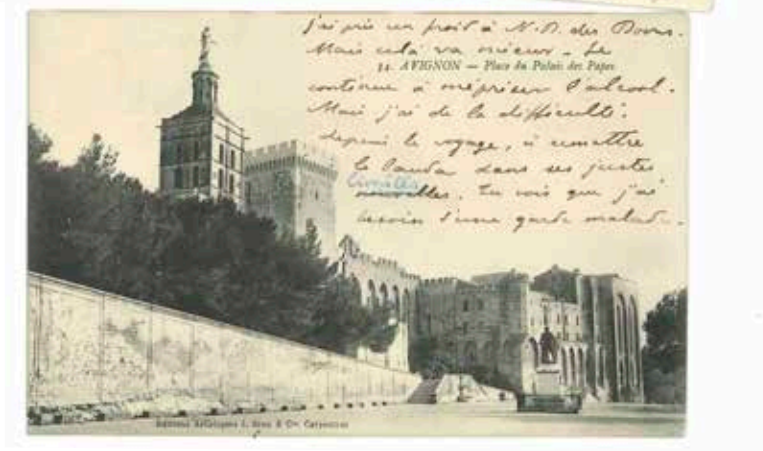 j'ai pris un froid à N.D. des Doms.
Mais celà va mieux. Je
34. AVIGNON — Place du Palais des Papes
continue à mépriser l'alcool.
Mais j'ai de la difficulté,
depuis le voyage, à remettre
le dans ses justes
limites
. Tu vois que j'ai
besoin d'une garde malade.
& Cie Carpentras